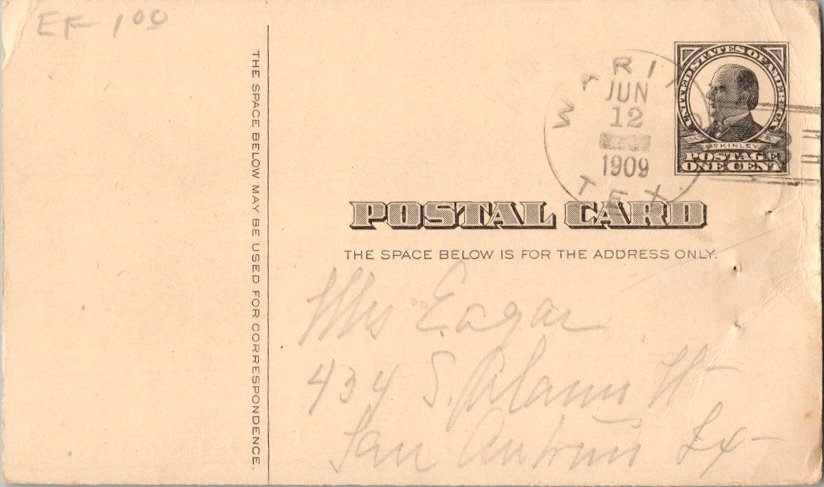 EF 1 00
THE SPACE BELOW MAY BE USED FOR CORRESPONDENCE.
JUN
12
1909
TEX.
UNITED STATES OF AMERICA
McKINLEY
POSTAGE
ONE CENT
POSTAL CARD
THE SPACE BELOW IS FOR THE ADDRESS ONLY.
Mrs Eagar
434 S. Alamo St
San Antonio Tx